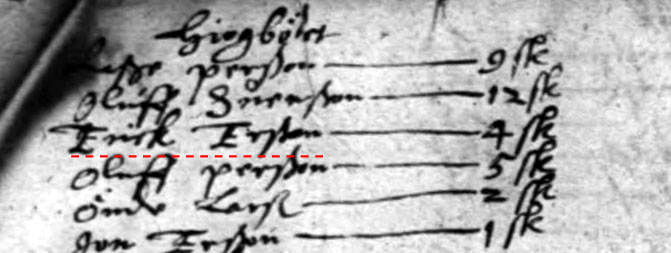 Hiogbölet
Lasse perßon 9 sk
Oluff Suenßon 12 sk
Erick Erßon 4 sk
Oluff perßon 5 sk
Önde Larß 2 sk
Jon Erßon 1 sk